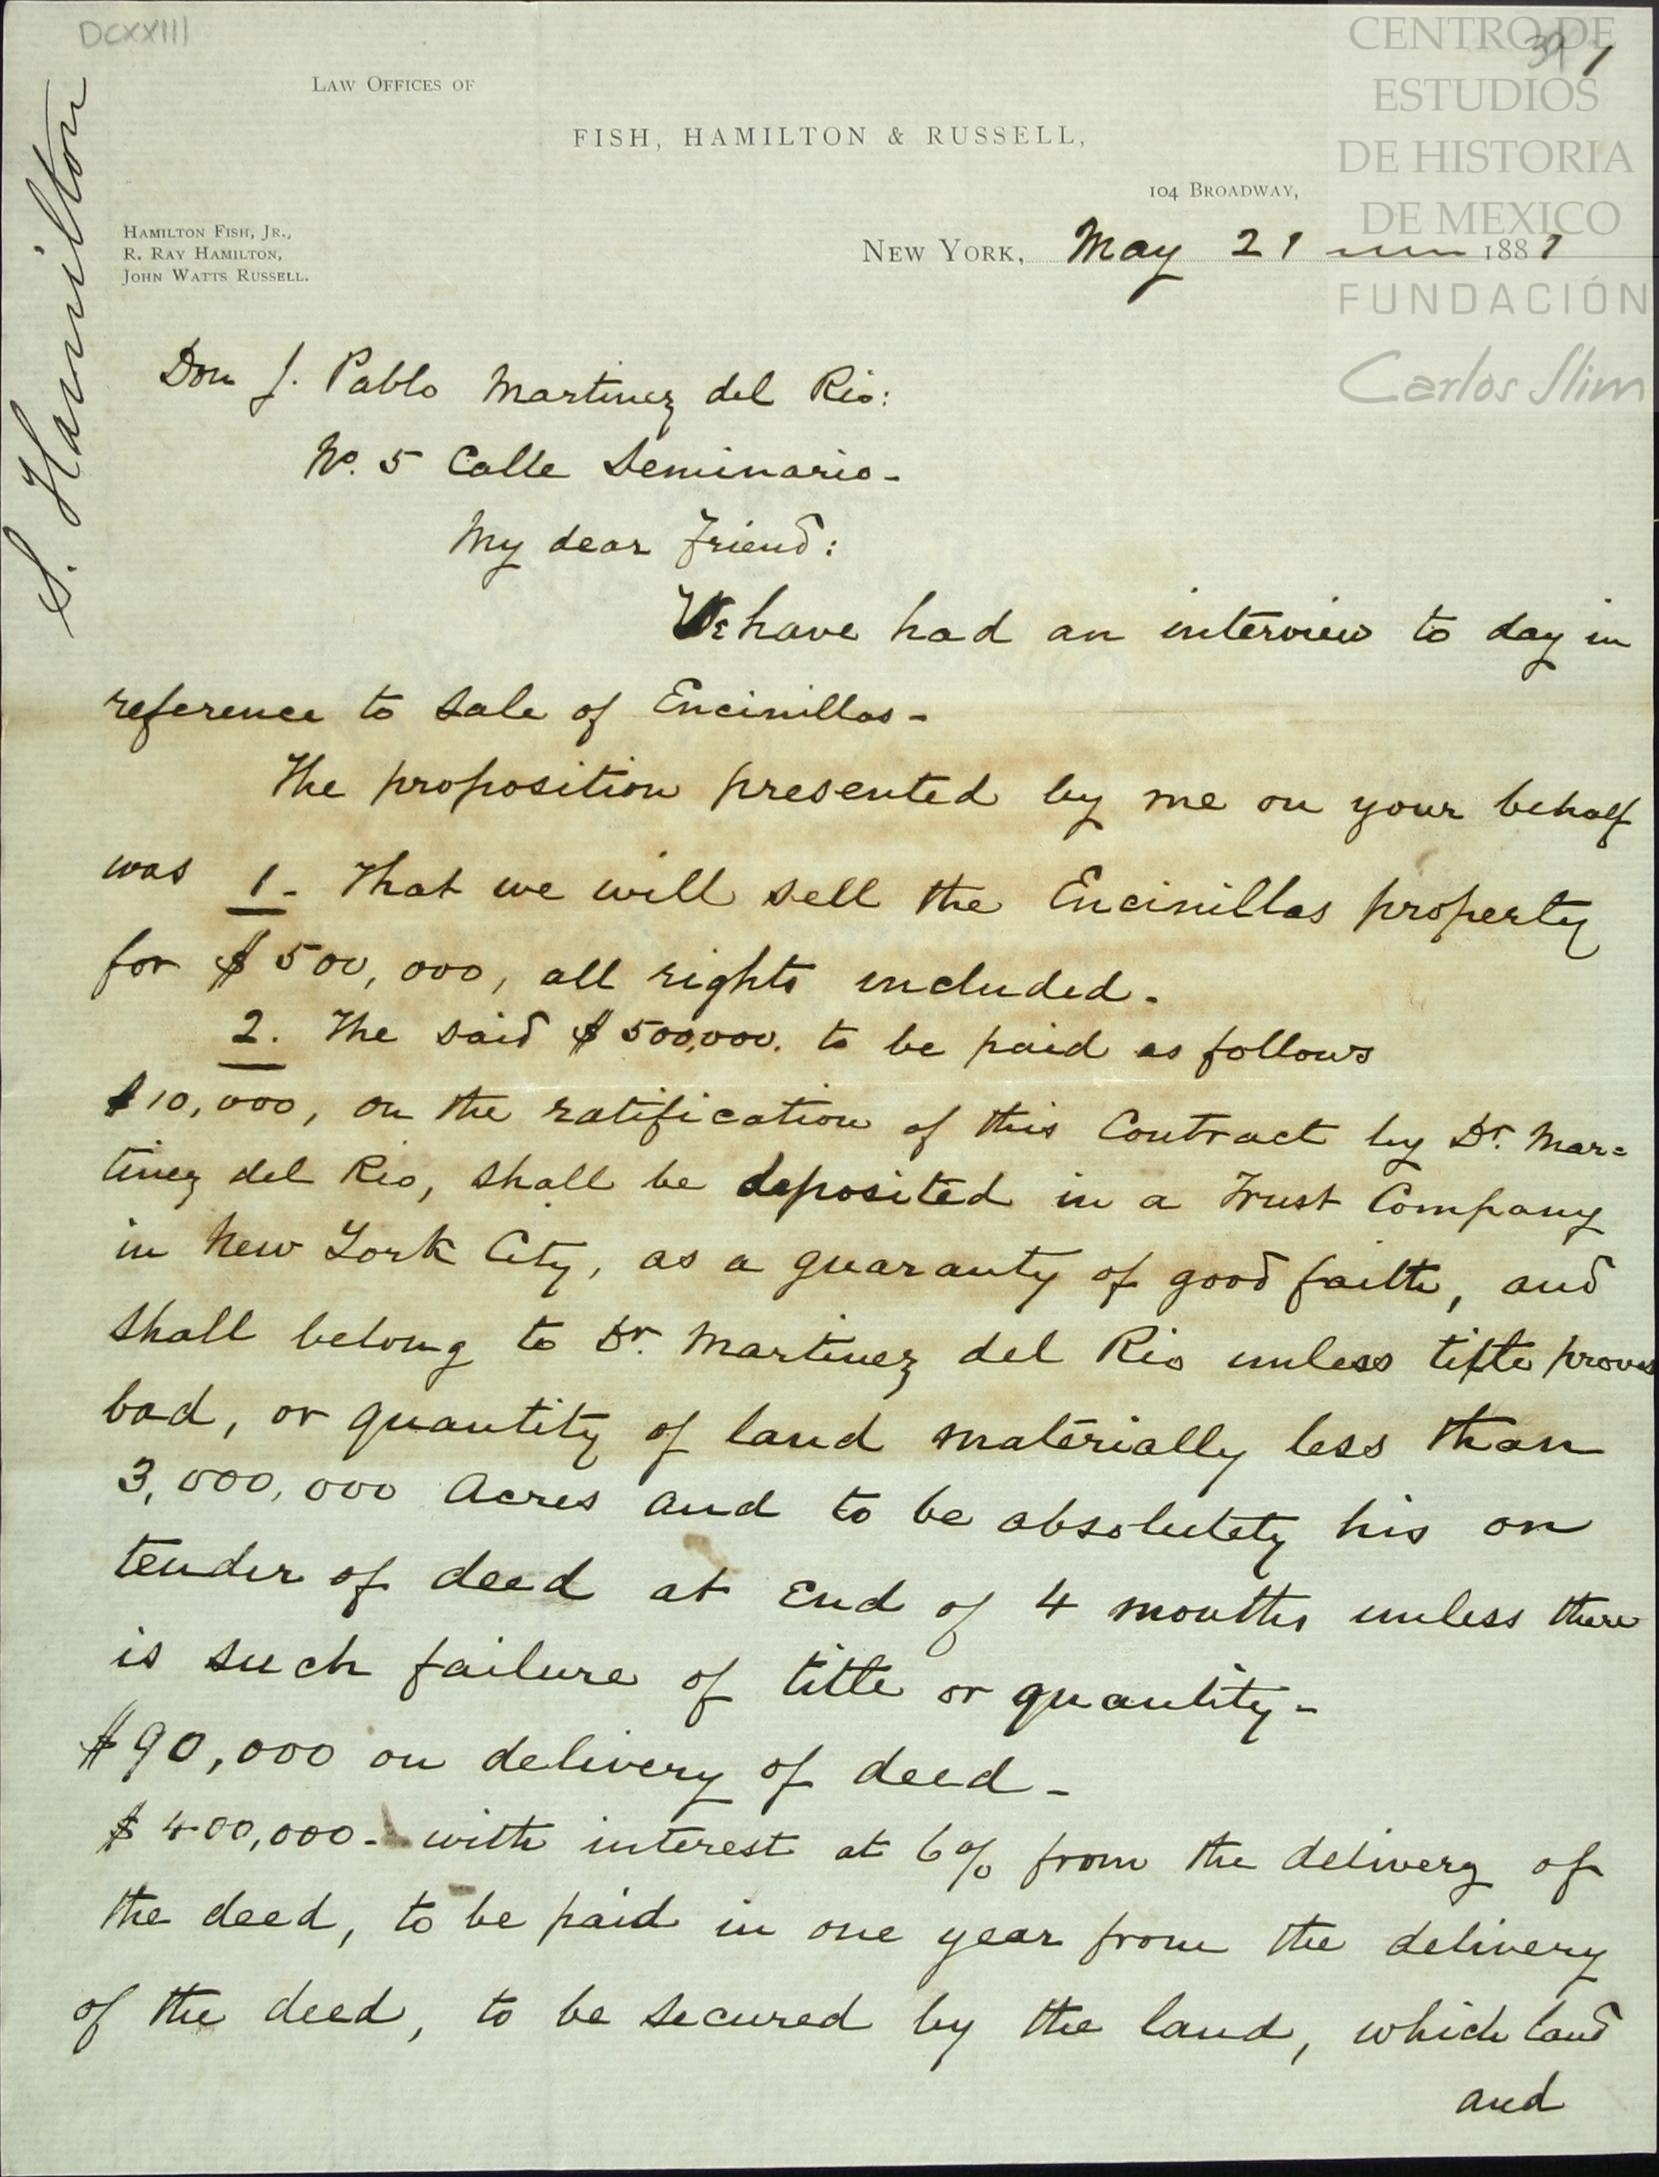 DCXXIII
39 1
CENTRO DE
ESTUDIOS
DE HISTORIA
DE MEXICO
FUNDACIÓN
Carlos Slim
S. Hamilton
LAW OFFICES OF
FISH, HAMILTON & RUSSELL,
104 BROADWAY,
HAMILTON FISH, JR.,
R. RAY HAMILTON,
JOHN WATTS RUSSELL.
NEW YORK, May 21 1881
Don J. Pablo Martinez del Rio:
No. 5 Calle Seminario-
My dear Friend:
We have had an interview to day in
reference to sale of Encinillas-
The proposition presented by me on your behalf
was 1- That we will sell the Encinillas property
for $500,000, all rights included.
2. The said $500,000. to be paid as follows
$10,000, on the ratification of this Contract by Dr. Mar=
tinez del Rio, shall be deposited in a Trust Company
in New York City, as a guaranty of good faith, and
shall belong to Dr. Martinez del Rio unless title proves
bad, or quantity of land materially less than
3,000,000 Acres and to be absolutely his on
tender of deed at End of 4 months unless there
is such failure of title or quantity-
$90,000 on delivery of deed-
$400,000- with interest at 6% from the delivery of
the deed, to be paid in one year from the delivery
of the deed, to be secured by the land, which land
and